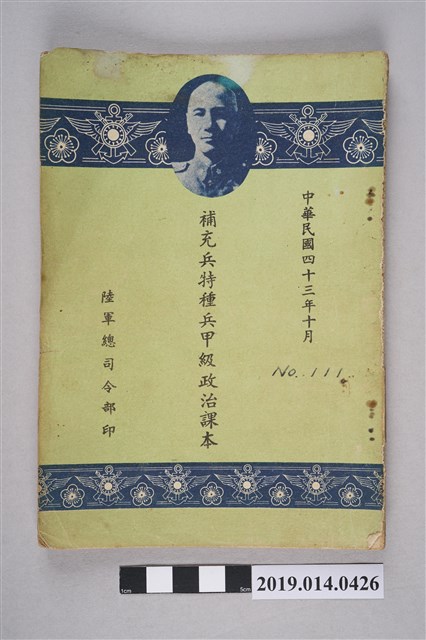 中華民國四十三年十月
補充兵特種兵甲級政治課本
陸軍總司令部印
No. 111
1cm
5cm
2019.014.0426